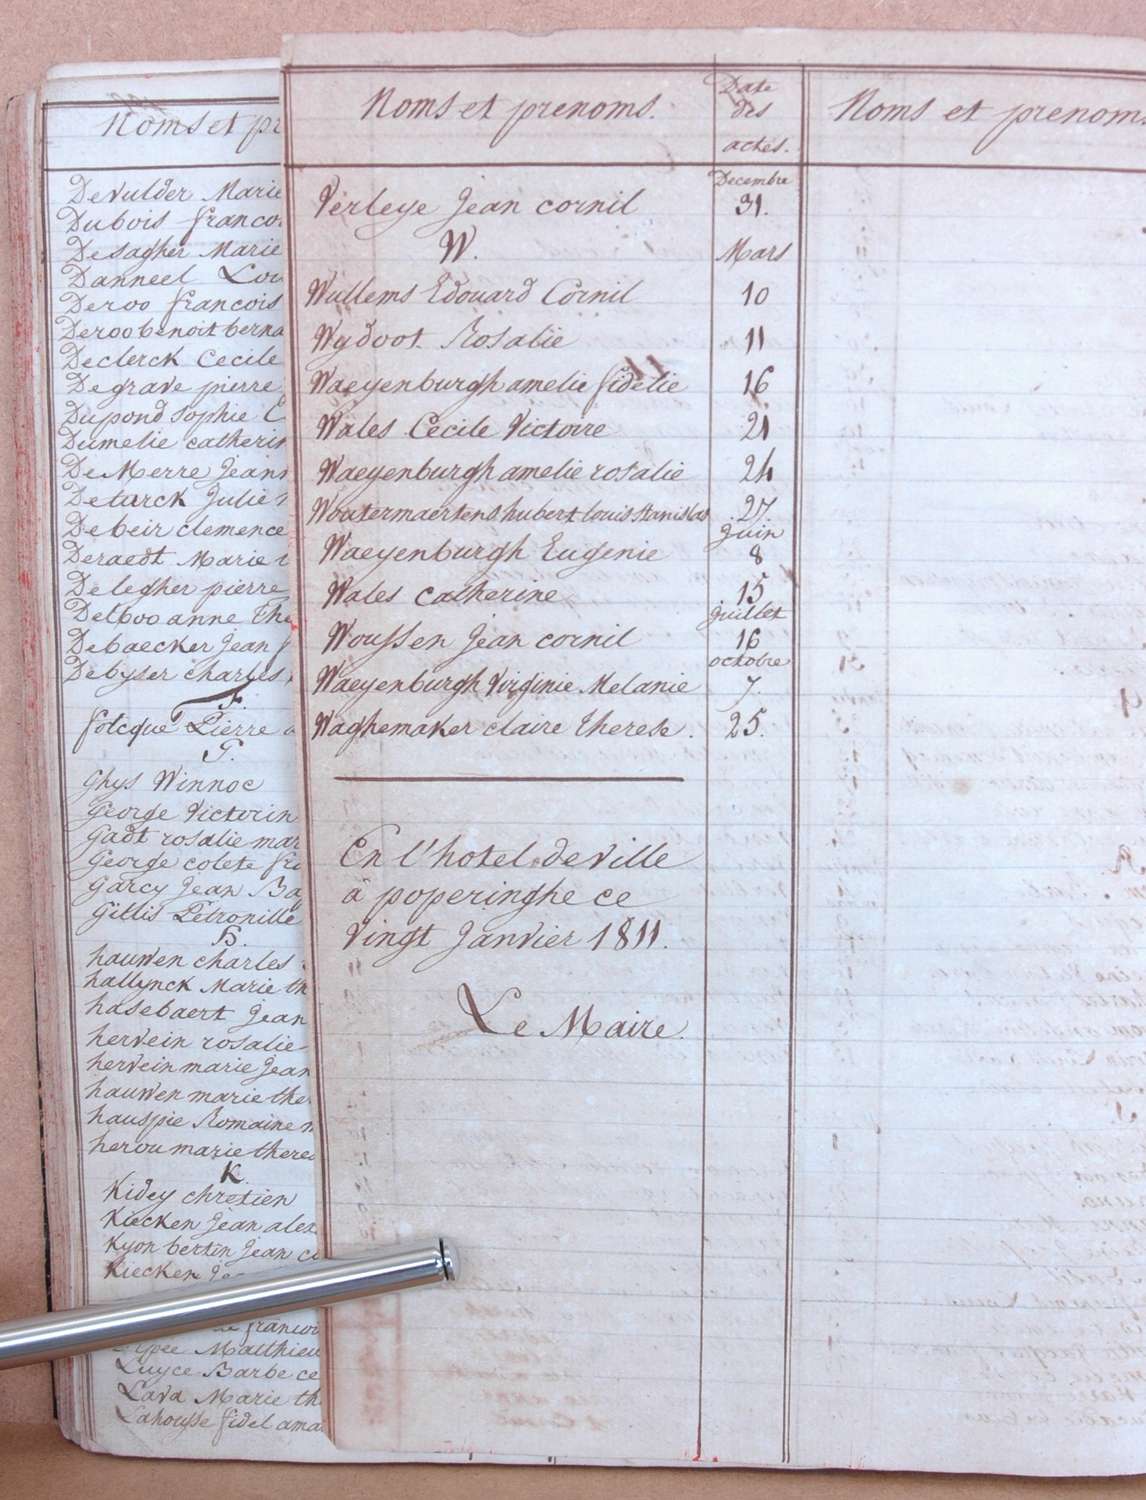 Noms et pr
Devulder Marie
Dubois franco
Desagher Marie
Danneel Lou
Deroo francois
Deroo benoit berna
Declerck Cecile
Degrave pierre
Dupond Sophie C
Dumelie catherin
De Merre Jeann
Deturck Julie
Debeir clemence
Deraedt Marie
Delegher pierre
Delboo anne the
Debaecker Jean
Debyser charles
F.
folcque Pierre
G.
Ghys Winnoc
George Victorin
Gadt rosalie mar
George colete fra
Garcy Jean Ba
Gillis Petronille
H.
hauwen charles
hallynck Marie th
hasebaert Jean
hervein rosalie
hervein marie Jean
hauwen marie the
hauspie Romaine m
herou marie there
K.
Kidey chretien
Kiecken Jean alex
Kyon bertin Jean co
Kiecken
francoi
Matthieu
Luyce Barbe ce
Lava Marie th
Lahousse fidel ama
Noms et prenoms. Date des actes.
Decembre
Verleye Jean cornil 31.
W. Mars
Wullems Edouard Cornil 10
Wydoot Rosalie 11
Waeyenburgh amelie fidelie 16
Wales Cecile Victoire 21
Waeyenburgh amelie rosalie 24
Woutermaertens hubert louis stanislas 27
Juin
Waeyenburgh Eugenie 8
Wales catherine 15
Juillet
Woussen Jean cornil 16
octobre
Waeyenburgh Virginie Melanie 7.
Waghemaker claire therese. 25.
En l'hotel de ville
à poperinghe ce
Vingt Janvier 1811.
Le Maire.
Noms et prenoms